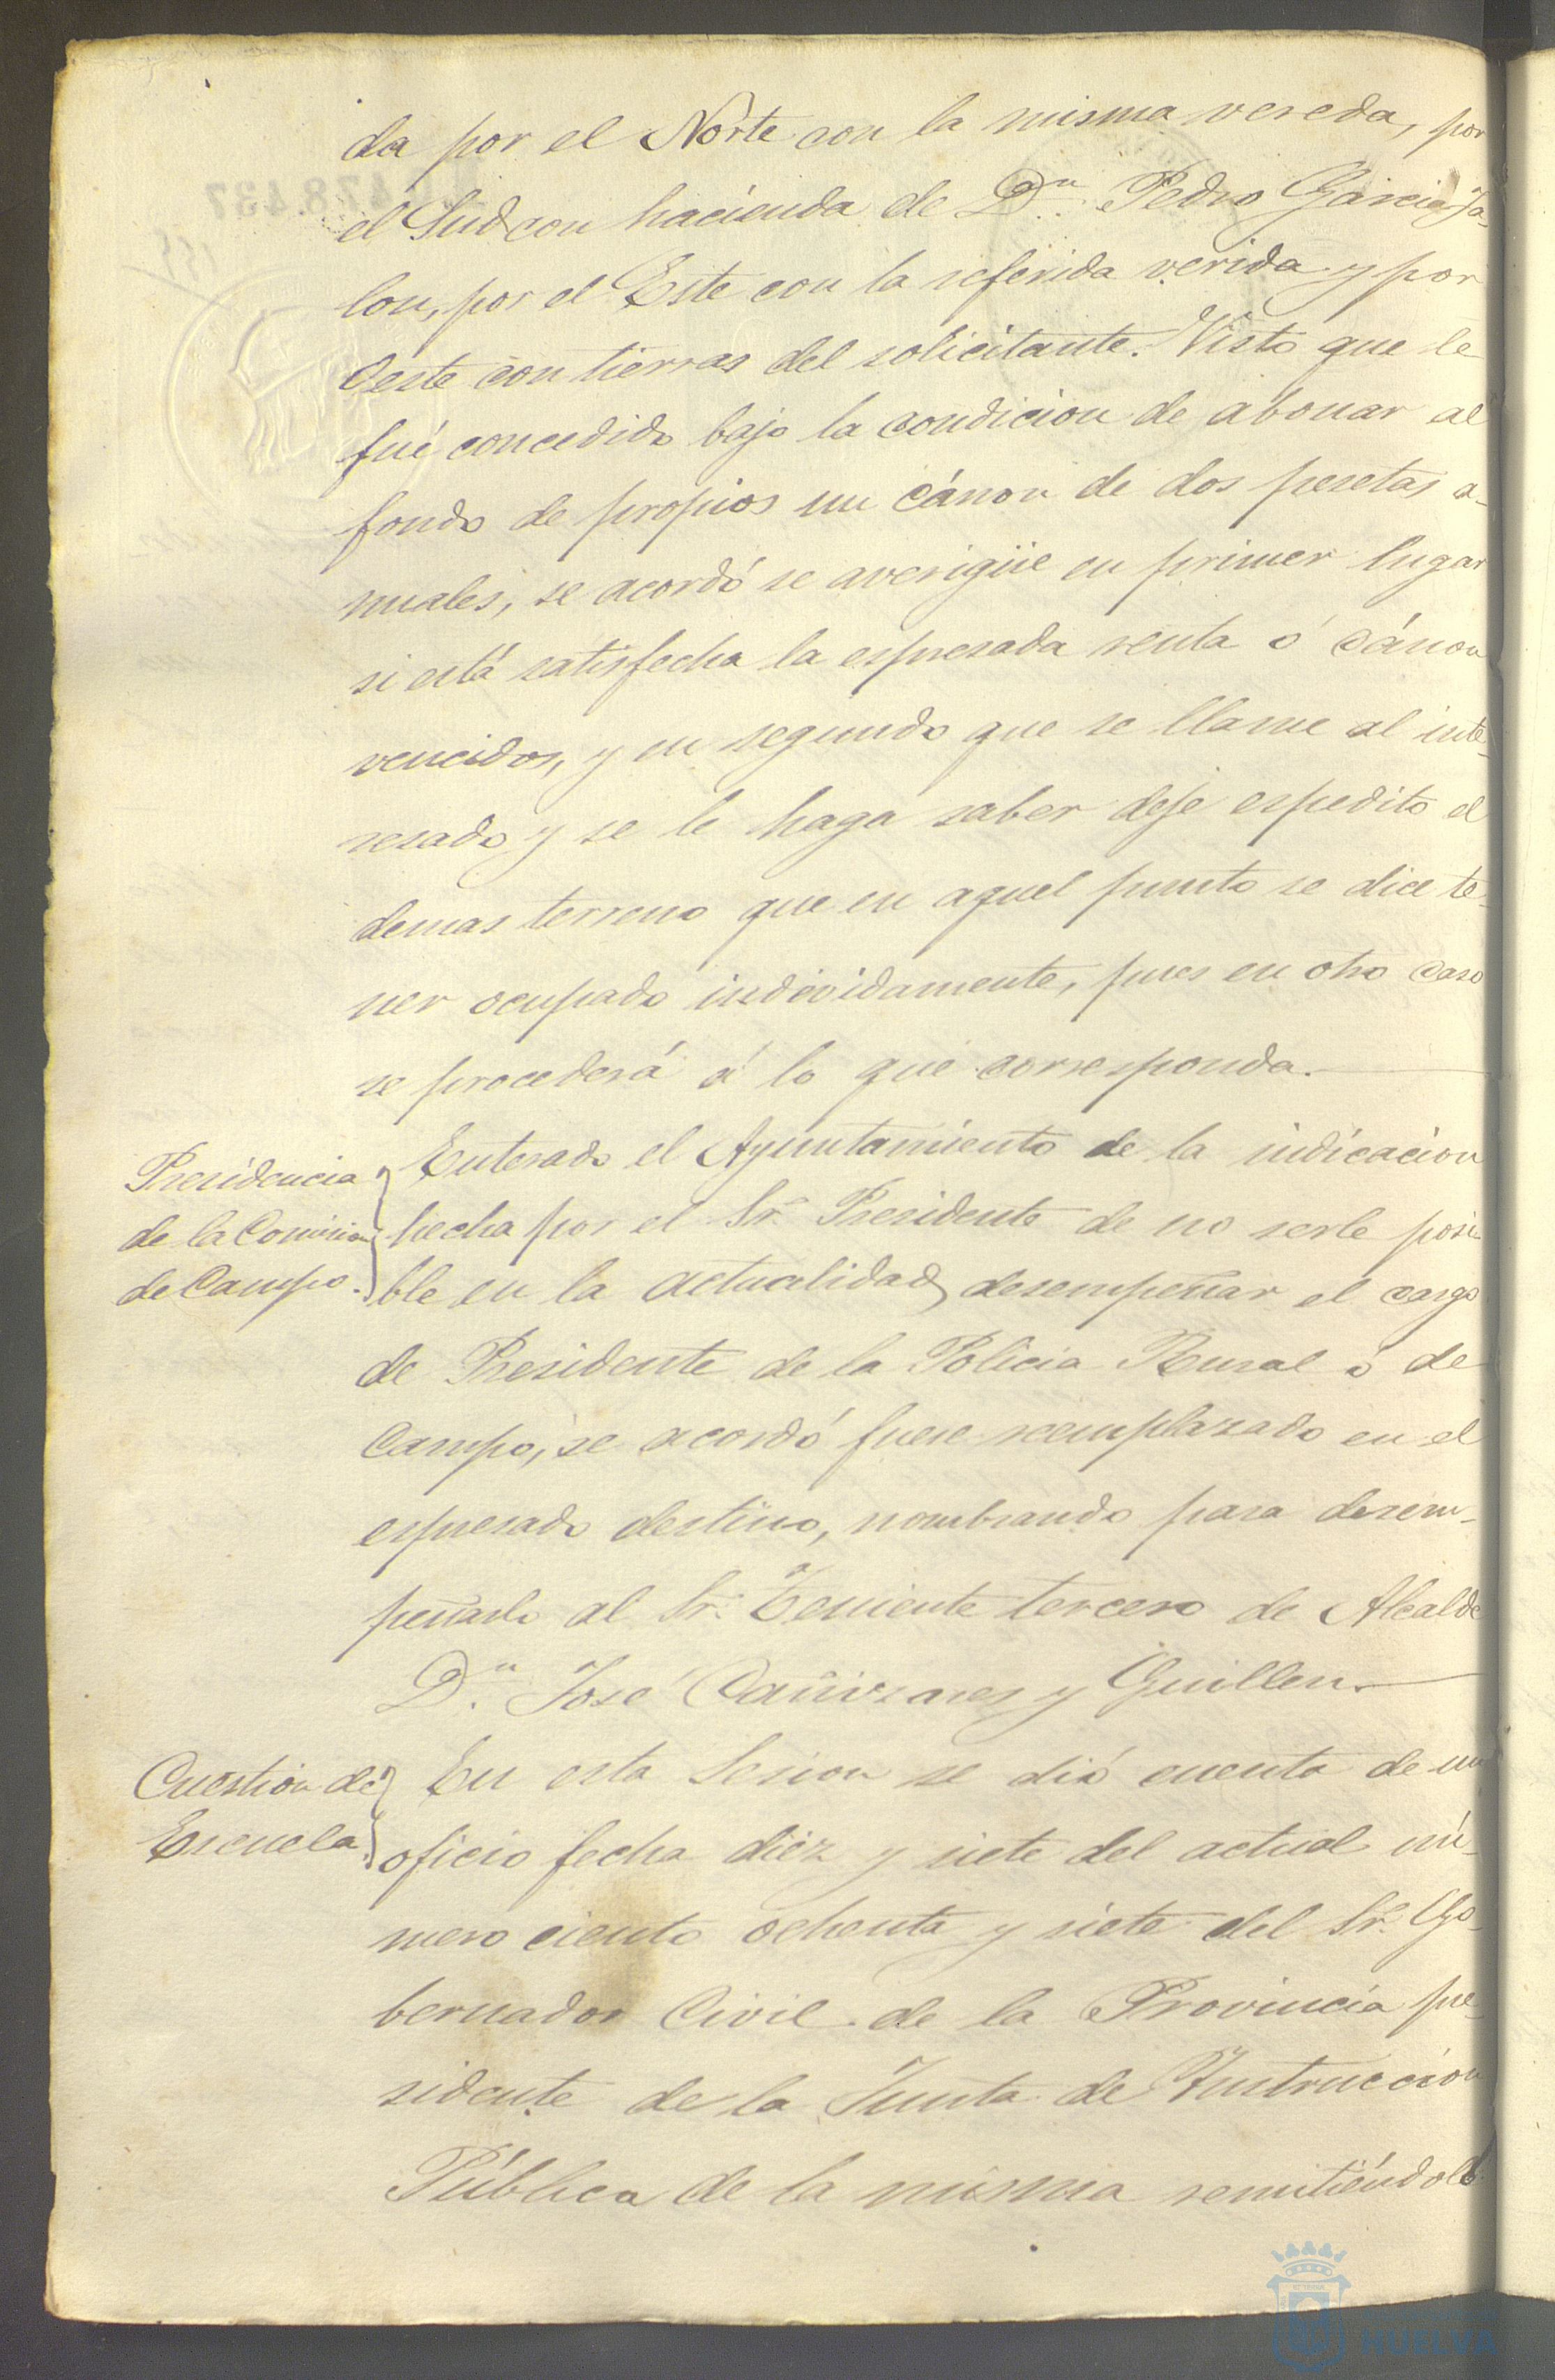 da por el Norte con la misma vereda, por
el Sud con hacienda de D.ⁿ Pedro Garcia Ja-
lon, por el Este con la referida verida y por
Oeste con tierras del solicitante. Visto que le
fué concedido bajo la condicion de abonar al
fondo de propios un cánon de dos pesetas a-
nuales, se acordó se averigüe en primer lugar
si está satisfecha la espresada renta ó cánon
vencidos, y en segundo que se llame al inte-
resado y se le haga saber deje espedito el
demas terreno que en aquel punto se dice te-
ner ocupado indevidamente, pues en otro caso
se procederá á lo que corresponda.
Presidencia
de la Comision
de Campo.
Enterado el Ayuntamiento de la indicacion
hecha por el Sr. Presidente de no serle posi-
ble en la actualidad desempeñar el cargo
de Presidente de la Policia Rural ó de
Campo, se acordó fuese reemplazado en el
espresado destino, nombrando para desem-
peñarlo al Sr. Teniente tercero de Alcalde
D.ⁿ José Cañizares y Guillen.
Cuestion de
Escuela.
En esta Sesion se dió cuenta de un
oficio fecha diez y siete del actual nú-
mero ciento ochenta y siete del Sr. Go-
bernador Civil de la Provincia pre-
sidente de la Junta de Instruccion
Pública de la misma remitiéndole
HUELVA